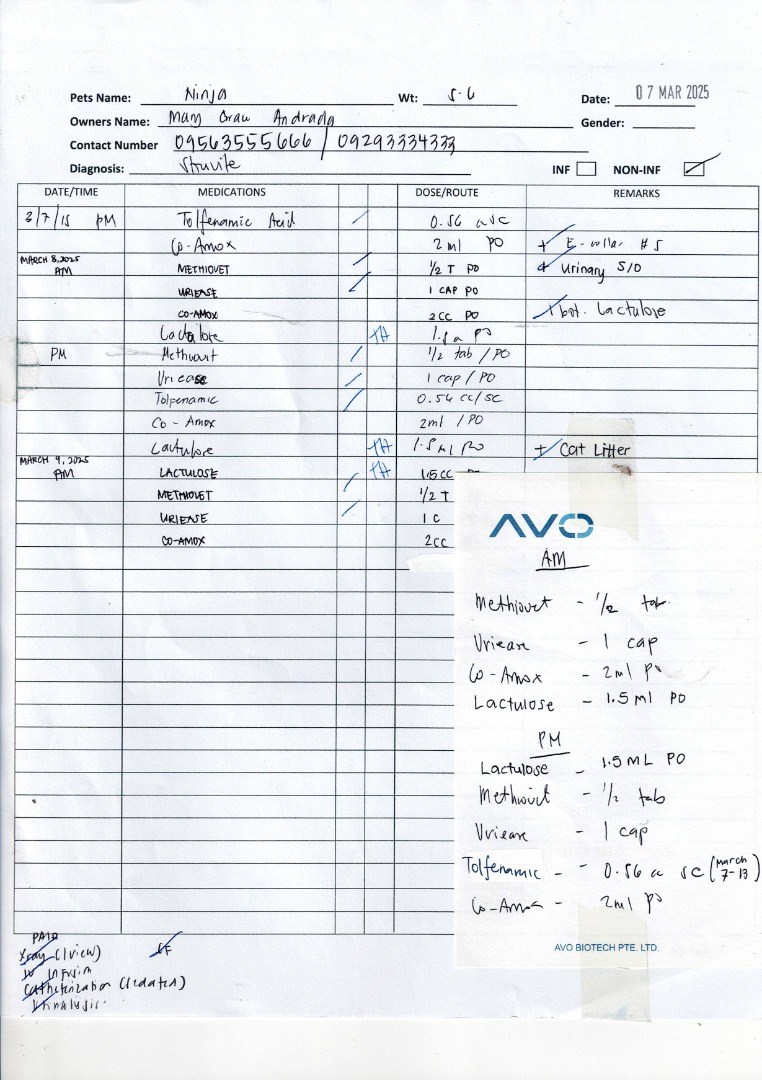 Pets Name: Ninja Wt: 5.6 Date: 07 MAR 2025
Owners Name: Mary Andrada Gender:
Contact Number 09563555666 / 09293334333
Diagnosis: Struvite INF NON-INF
DATE/TIME MEDICATIONS DOSE/ROUTE REMARKS
3/7/25 PM Tolfenamic Acid 0.56 SC
Co-Amox 2 ml PO + E-collar #5
MARCH 8, 2025
AM METHIOVET 1/2 T PO + Urinary S/O
URIEASE 1 CAP PO
CO-AMOX 2CC PO + bot. Lactulose
Lactulose TH 1.5 PO
PM Methiovet 1/2 tab / PO
Uriease 1 cap / PO
Tolpenamic 0.56 cc/sc
Co - Amox 2ml / PO
Lactulose TH 1.5 ml PO + Cat Litter
MARCH 9, 2025
AM LACTULOSE TH 1.5CC PO
METHIOVET 1/2 T
URIEASE 1 C
CO-AMOX 2CC
AVO
AM
Methiovet - 1/2 tab.
Uriease - 1 cap
Co-Amox - 2ml PO
Lactulose - 1.5 ml PO
PM
Lactulose - 1.5 ML PO
Methiovet - 1/2 tab
Uriease - 1 cap
Tolfenamic - - 0.56 SC (March 7-13)
Co-Amox - 2ml PO
AVO BIOTECH PTE. LTD.
PAID
Xray (1view) CF
IV Infusion
Catheterization (sedated)
Urinalysis